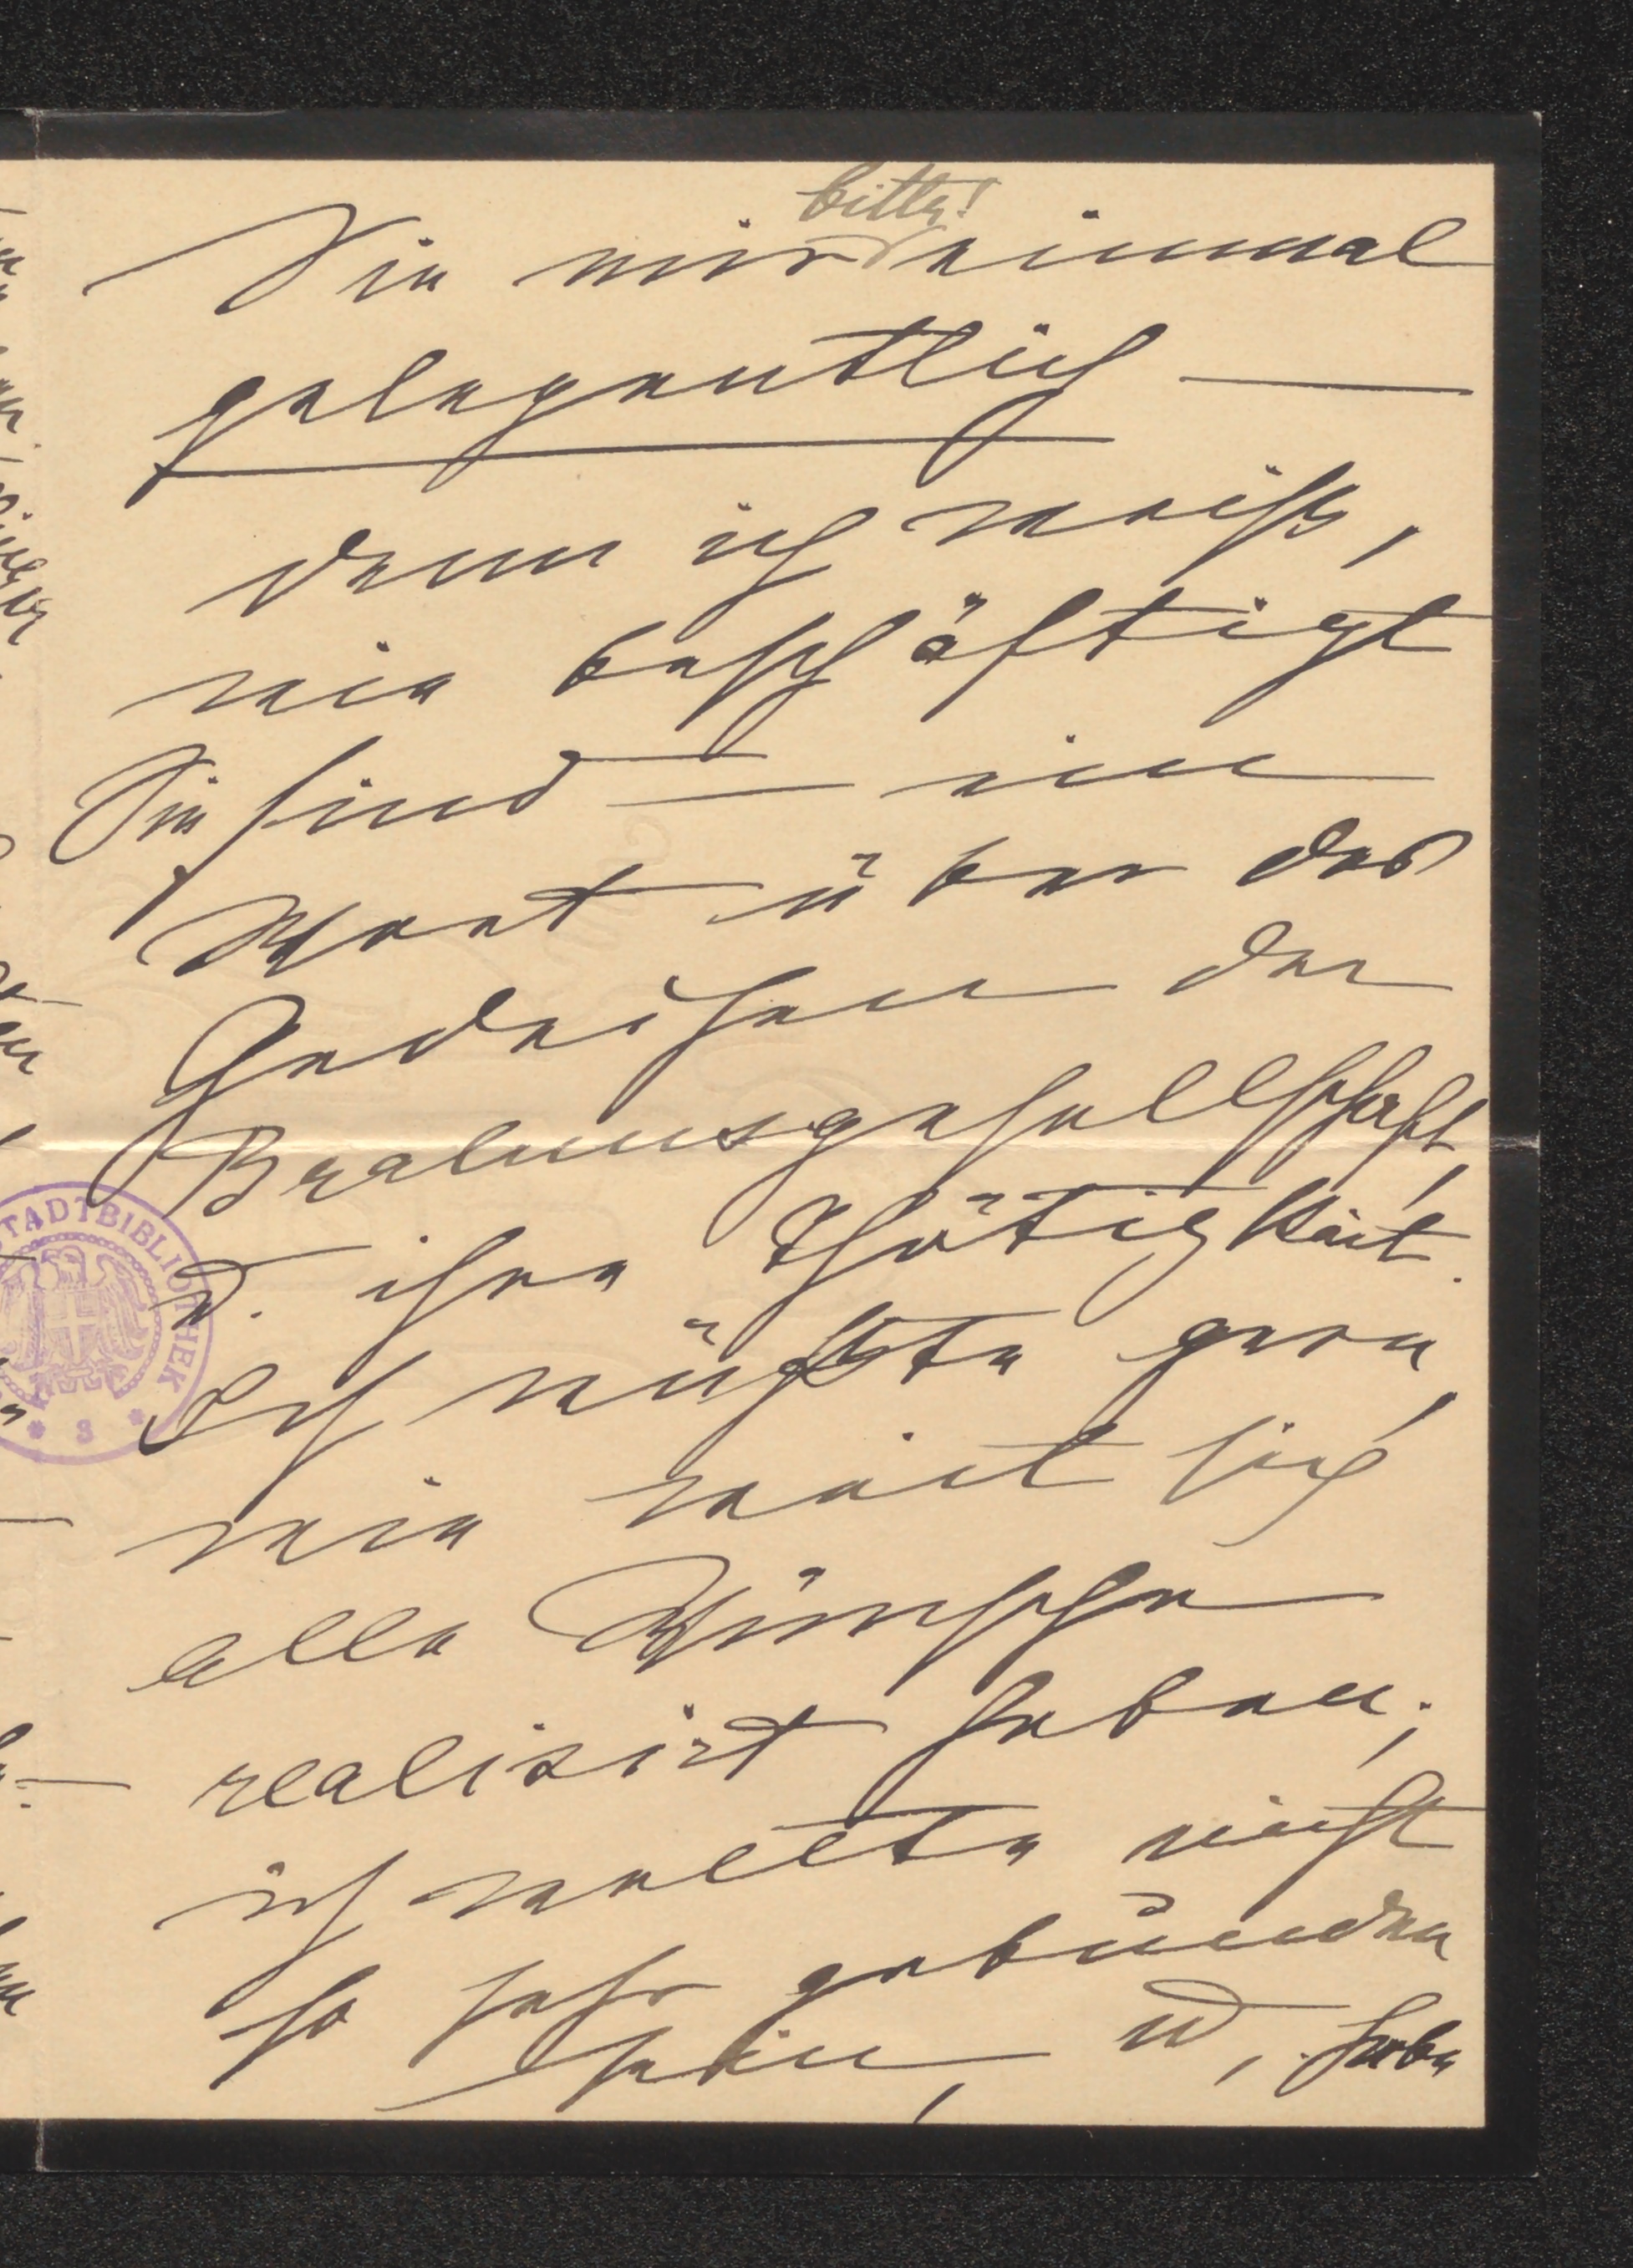 bitte!
Sie mir einmal
gelegentlich —
denn ich weiß,
wie beschäftigt
Sie sind — ein
Wort über das
Gedeihen der
Brahmsgesellschaft,
u. ihre Thätigkeit.
Ich wüßte gern,
wie weit sich
alle Wünsche
realisirt haben;
ich wollte nicht
so sehr gebunden
sein, u. habe
STADTBIBLIOTHEK
* 3 *